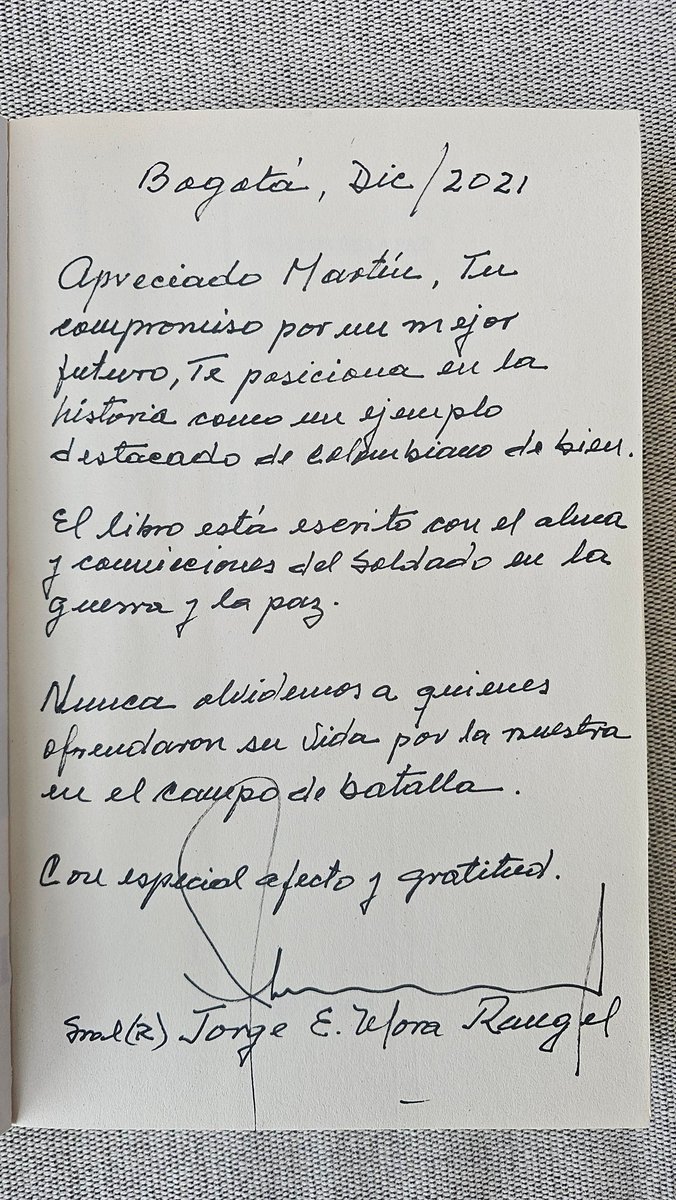 Bogotá, Dic/2021
Apreciado Martín, Tu
compromiso por un mejor
futuro, Te posiciona en la
historia como un ejemplo
destacado de colombiano de bien.
El libro está escrito con el alma
y convicciones del Soldado en la
guerra y la paz.
Nunca olvidemos a quienes
ofrendaron su vida por la nuestra
en el campo de batalla.
Con especial afecto y gratitud.
Gral(R) Jorge E. Mora Rangel